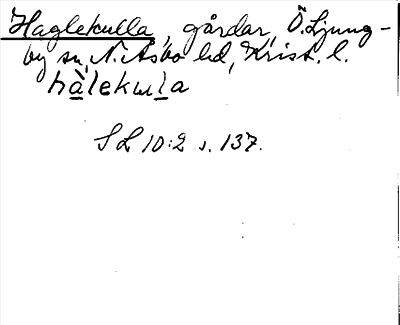 Haglekulla, gårdar, Ö. Ljung-
by sn, N. Åsbo hd, Krist. l.
hàlekuḷa
SL 10:2 s. 137.